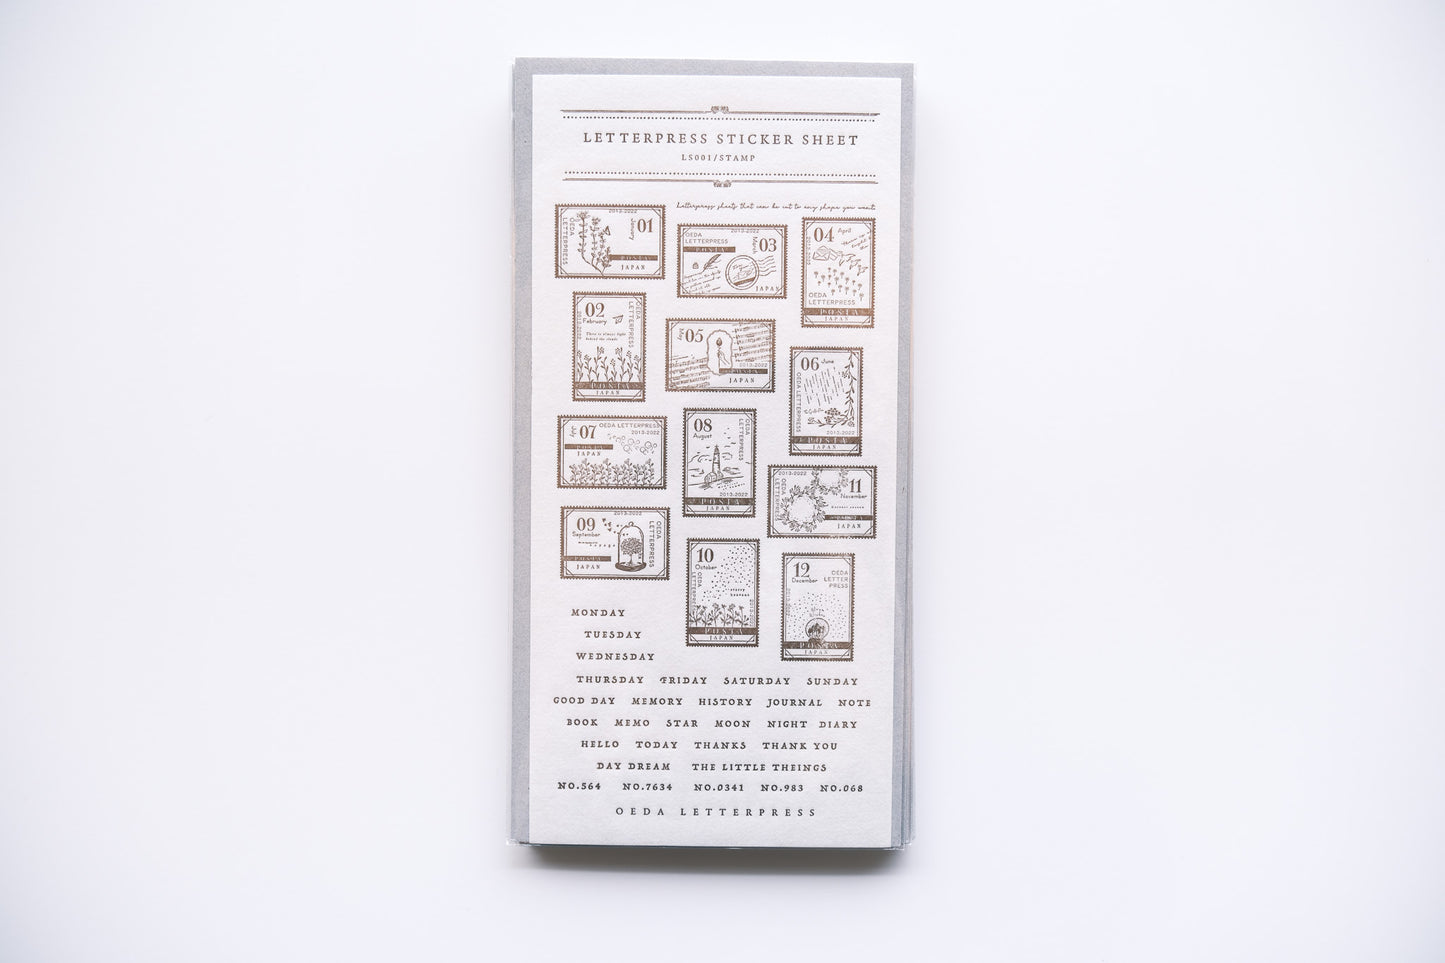 LETTERPRESS STICKER SHEET
LS001/STAMP
Letterpress sheets that can be cut to any shape you want.
2013-2022
OEDA
LETTERPRESS
01
January
POSTA
JAPAN
OEDA
LETTERPRESS
2013-2022
03
March
POSTA
JAPAN
04
April
OEDA
LETTERPRESS
POSTA
JAPAN
02
February
OEDA
LETTERPRESS
2013-2022
There is always light
behind the clouds
POSTA
JAPAN
05
May
2013-2022
POSTA
JAPAN
06
June
OEDA LETTERPRESS
2013-2022
POSTA
JAPAN
07
July
OEDA LETTERPRESS
2013-2022
POSTA
JAPAN
08
August
OEDA
LETTERPRESS
2013-2022
POSTA
JAPAN
2013-2022
OEDA
LETTERPRESS
11
November
POSTA
JAPAN
09
September
2013-2022
OEDA
LETTERPRESS
voyage
POSTA
JAPAN
10
October
OEDA
LETTERPRESS
starry
heavens
POSTA
JAPAN
12
December
OEDA
LETTER
PRESS
2013-2022
POSTA
JAPAN
MONDAY
TUESDAY
WEDNESDAY
THURSDAY FRIDAY SATURDAY SUNDAY
GOOD DAY MEMORY HISTORY JOURNAL NOTE
BOOK MEMO STAR MOON NIGHT DIARY
HELLO TODAY THANKS THANK YOU
DAY DREAM THE LITTLE THEINGS
NO.564 NO.7634 NO.0341 NO.983 NO.068
OEDA LETTERPRESS